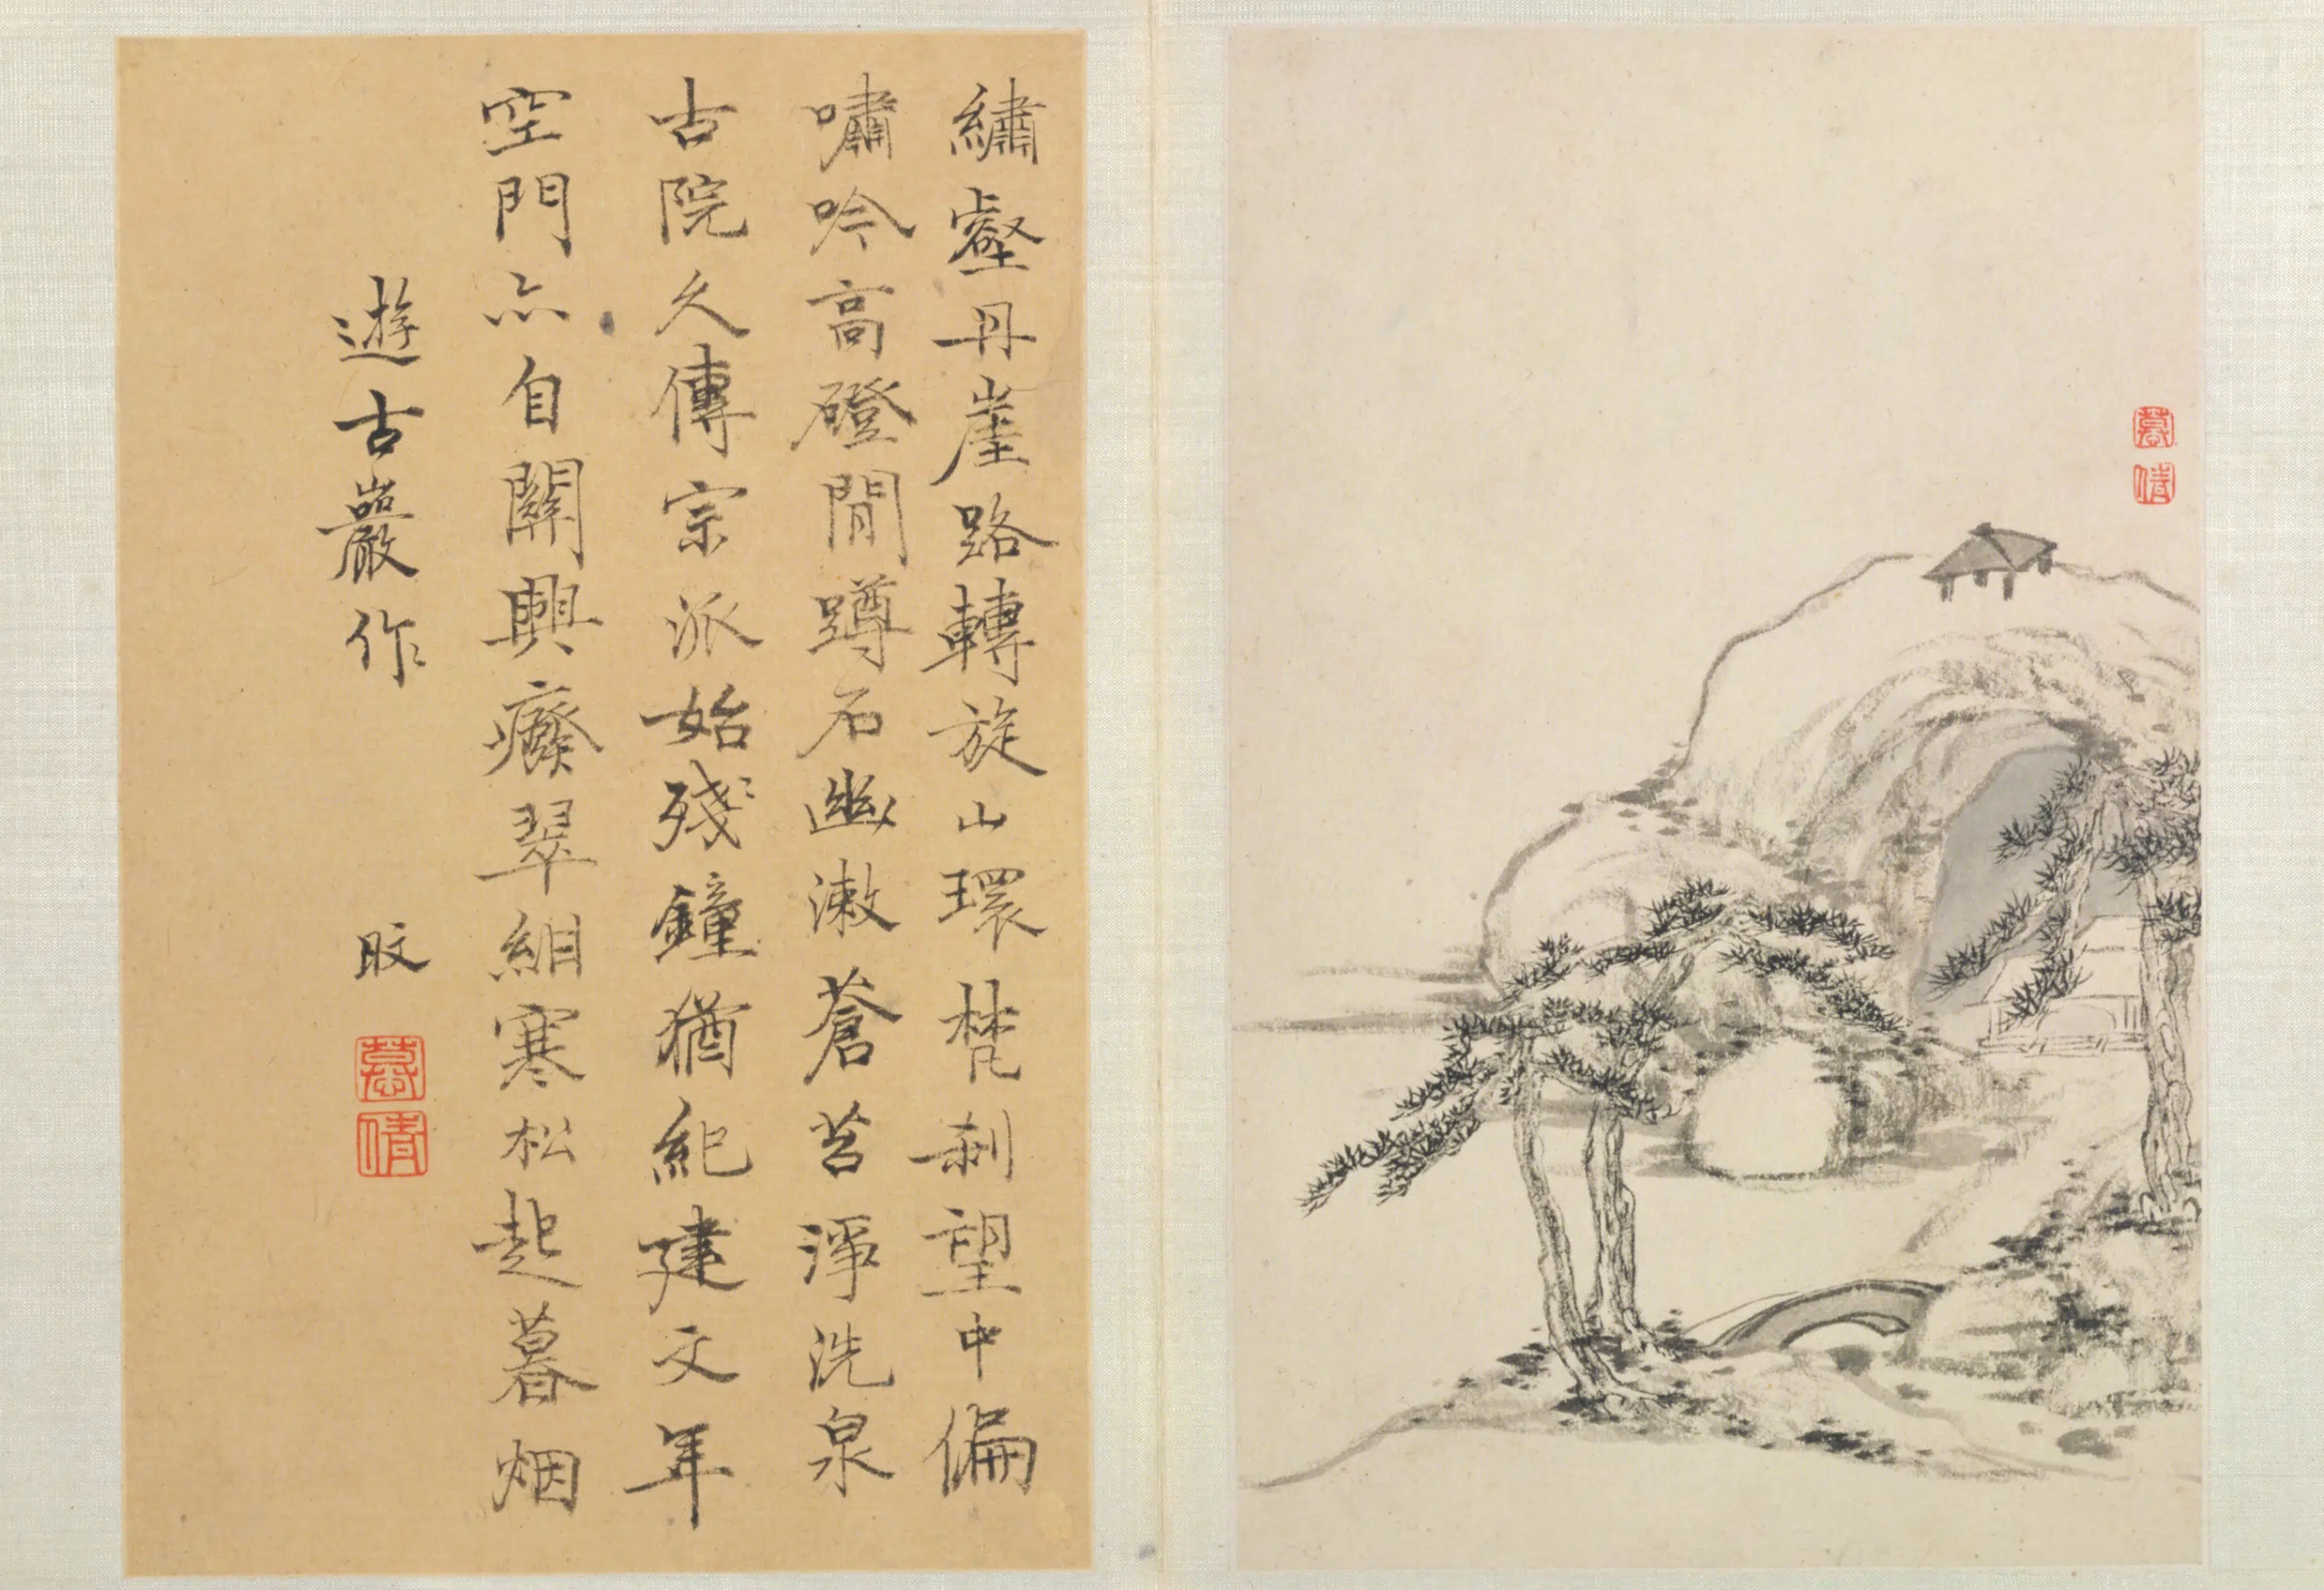 繡壑丹崖路轉旋山環梵刹望中偏
嘯吟高磴閒蹲石幽漱蒼苔淨洗泉
古院久傳宗派始殘鐘猶紀建文年
空門亦自關興癈翠寒松起暮烟
遊古巖作
旼
慕倩
慕倩